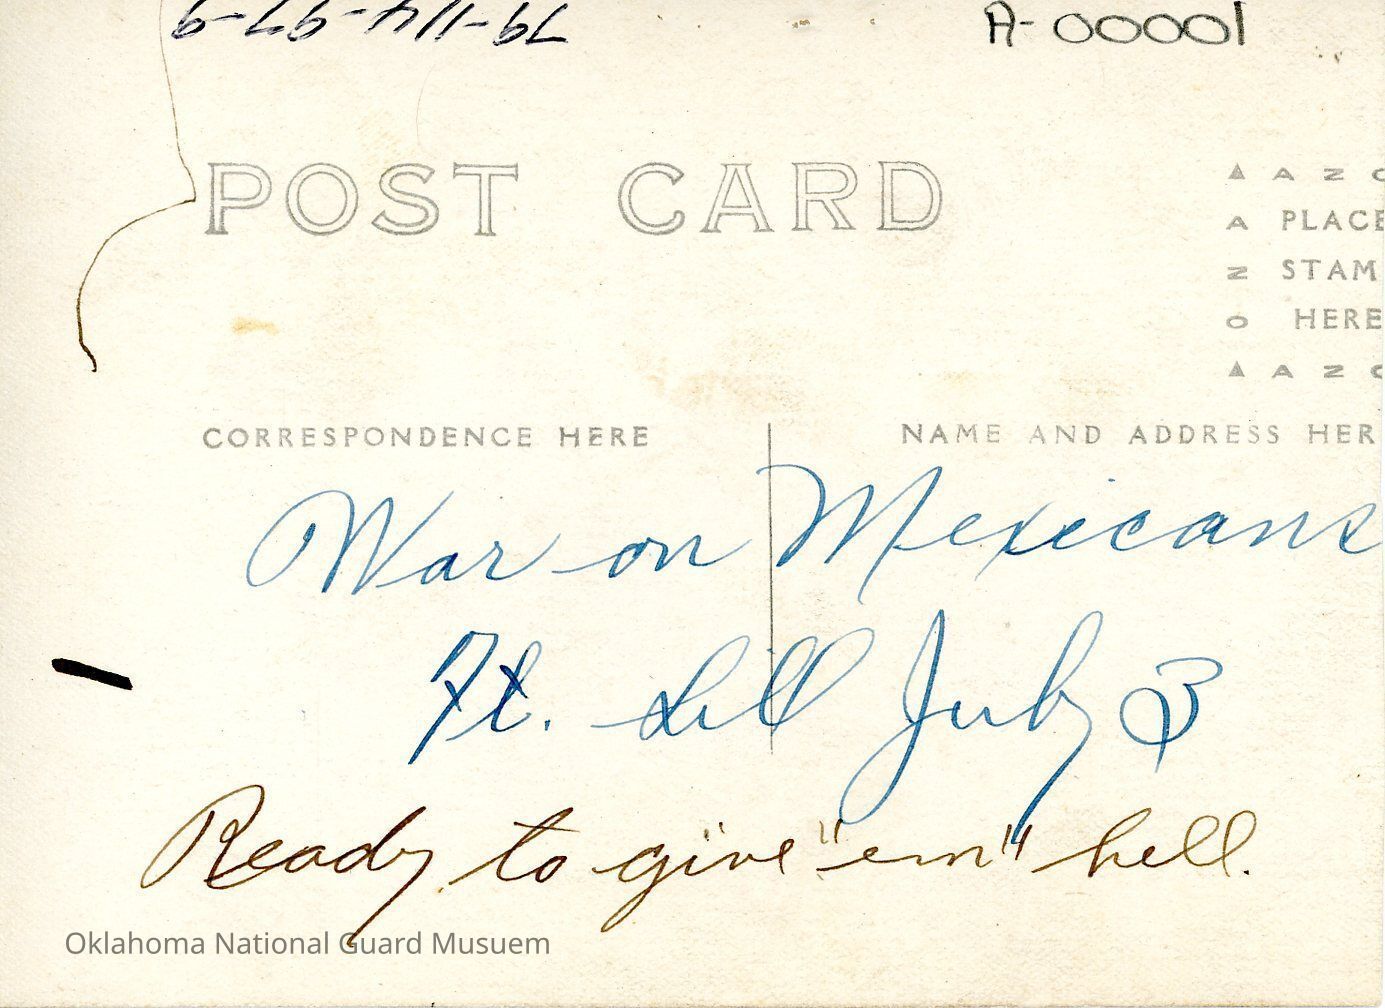 79-114-97-9
A-00001
POST CARD
▲ A Z
A PLACE
Z STAM
O HERE
▲ A Z
CORRESPONDENCE HERE
NAME AND ADDRESS HER
War on Mexicans
Ft. Sill July 3
Ready to give "em" hell.
Oklahoma National Guard Musuem